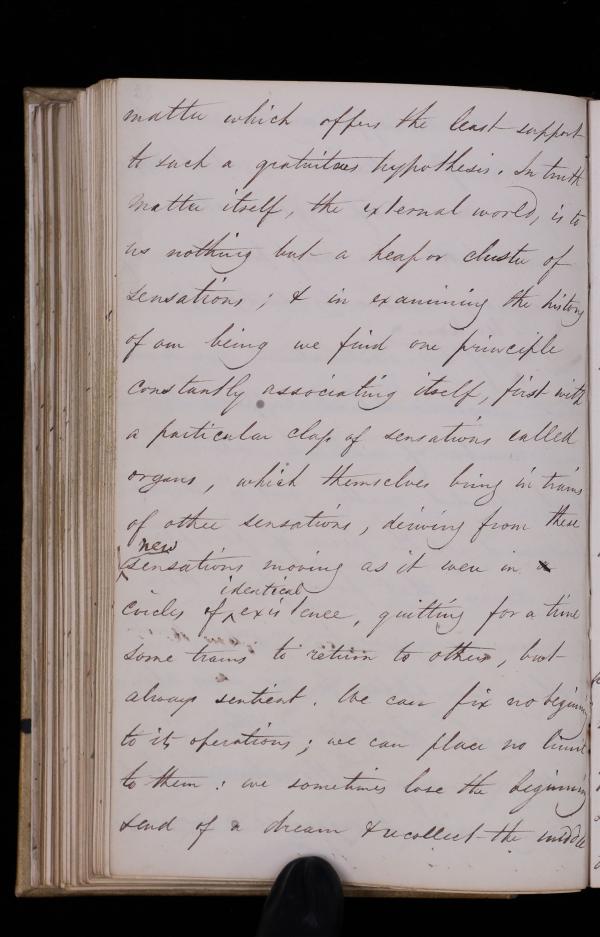 matter which offers the least support
to such a gratuitous hypothesis. In truth
matter itself, the external world, is to
us nothing but a heap or cluster of
sensations; & in examining the history
of our being we find one principle
constantly associating itself, first with
a particular class of sensations called
organs, which themselves bring in trains
of other sensations, deriving from these
new
sensations moving as it were in
identical
circles of existence, quitting for a time
some trains to return to others, but
always sentient. We can fix no beginning
to its operations; we can place no limit
to them: we sometimes lose the beginning
& end of a dream & recollect the middle